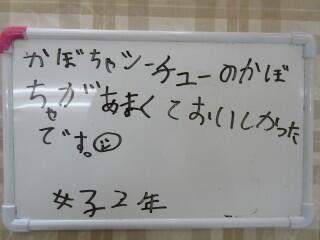 かぼちゃシーチューのかぼ
ちゃがあまくておいしかった
です。
女子2年